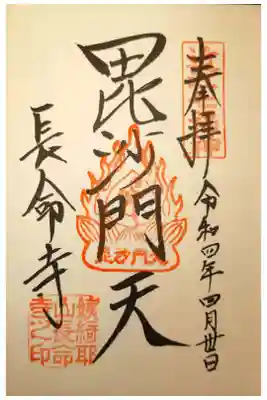 奉拝
令和四年四月卅日
毘沙門天
長命寺
姨綺耶
山長命
寺之印